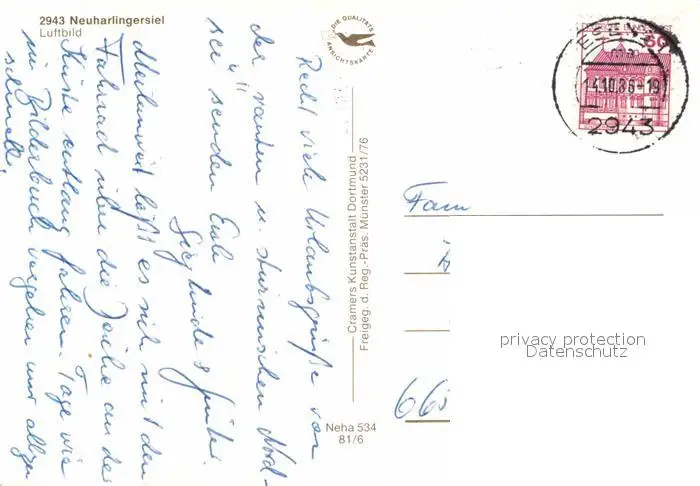 2943 Neuharlingersiel
Luftbild
DIE QUALITÄTS
ANSICHTSKARTE
Recht viele Urlaubsgrüße von
der rauhen u. stürmischen Nord-
see senden Euch
Sieglinde & Günter.
Meilenweit läßt es sich mit dem
Fahrrad über die Deiche an der
Küste entlang fahren. Tage wie
im Bilderbuch vergehen nur allzu
schnell.
Cramers Kunstanstalt Dortmund
Freigeg. d. Reg.-Präs. Münster 5231/76
Neha 534
81/6
60
14.10.86-19
2943
Fam
665
privacy protection
Datenschutz